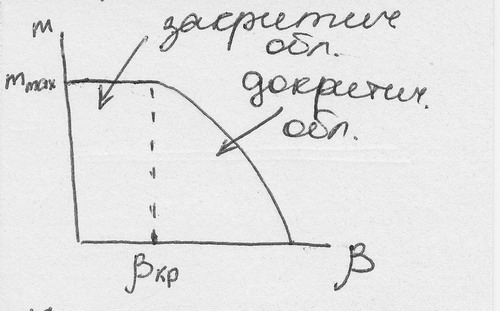 m
закритич
обл.
m max
докритич.
обл.
βкр
β